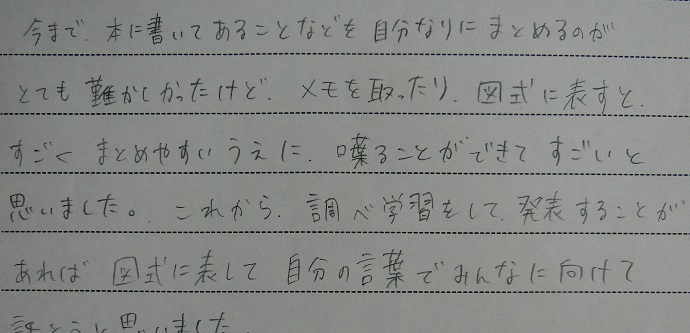 今まで、本に書いてあることなどを自分なりにまとめるのが
とても難かしかったけど、メモを取ったり、図式に表すと、
すごくまとめやすいうえに、喋ることができてすごいと
思いました。これから、調べ学習をして、発表することが
あれば図式に表して自分の言葉でみんなに向けて
話そうと思いました